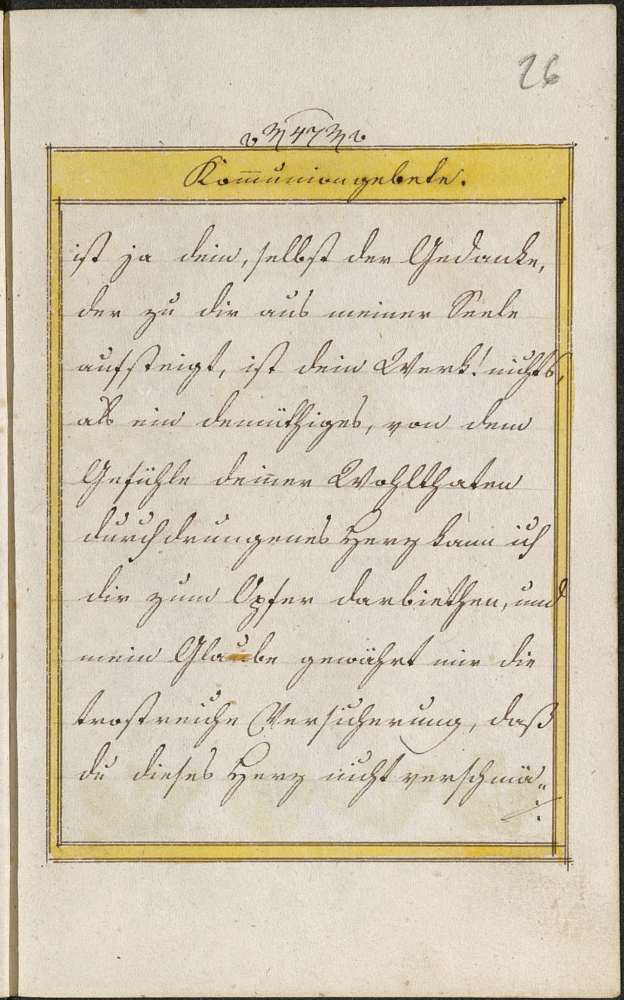 26
47
Kom̅uniongebete.
ist ja dein, selbst der Gedanke,
der zu dir aus meiner Seele
aufsteigt, ist dein Werk! nichts,
als ein demüthiges, von dem
Gefühle deiner Wohlthaten
durchdrungenes Herz kann ich
dir zum Opfer darbiethen, und
mein Glaube gewährt mir die
trostreiche Versicherung, daß
du dieses Herz nicht verschmä=